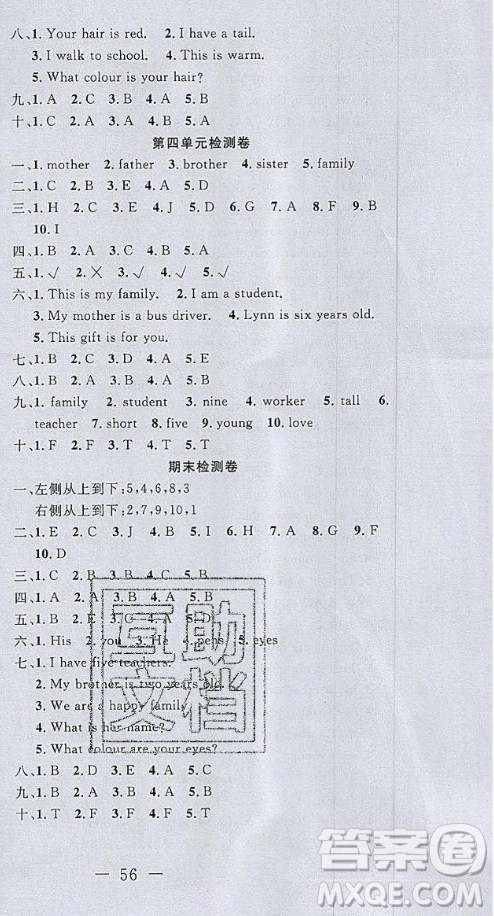 八、1. Your hair is red.  2. I have a tail.
3. I walk to school.  4. This is warm.
5. What colour is your hair?
九、1. A  2. C  3. B  4. A  5. B
十、1. A  2. C  3. A  4. C  5. B
第四单元检测卷
一、1. mother  2. father  3. brother  4. sister  5. family
二、1. C  2. D  3. A  4. E  5. B
三、1. H  2. C  3. E  4. J  5. D  6. G  7. A  8. F  9. B
10. I
四、1. B  2. C  3. D  4. A  5. D
五、1. √  2. ×  3. √  4. √  5. √
六、1. This is my family.  2. I am a student.
3. My mother is a bus driver.  4. Lynn is six years old.
5. This gift is for you.
七、1. B  2. D  3. C  4. A  5. E
八、1. B  2. B  3. A  4. A  5. C
九、1. family  2. student  3. nine  4. worker  5. tall  6.
teacher  7. short  8. five  9. young  10. love
十、1. F  2. F  3. T  4. T  5. T
期末检测卷
一、左侧从上到下:5,4,6,8,3
右侧从上到下:2,7,9,10,1
二、1. E  2. C  3. J  4. B  5. A  6. I  7. G  8. H  9. F
10. D
三、1. C  2. B  3. B
四、1. A  2. B
五、1. B  2. D
六、1. His  2. you  3. He  4. pens  5. eyes
七、1. I have five teachers.
2. My brother is two years old.
3. We are a happy family.
4. What is her name?
5. What colour are your eyes?
八、1. B  2. D  3. E  4. A  5. C
九、1. B  2. C  3. A  4. B  5. C
十、1. T  2. F  3. F  4. T  5. T
互助
文档
— 56 —
答案圈
MXQE.COM